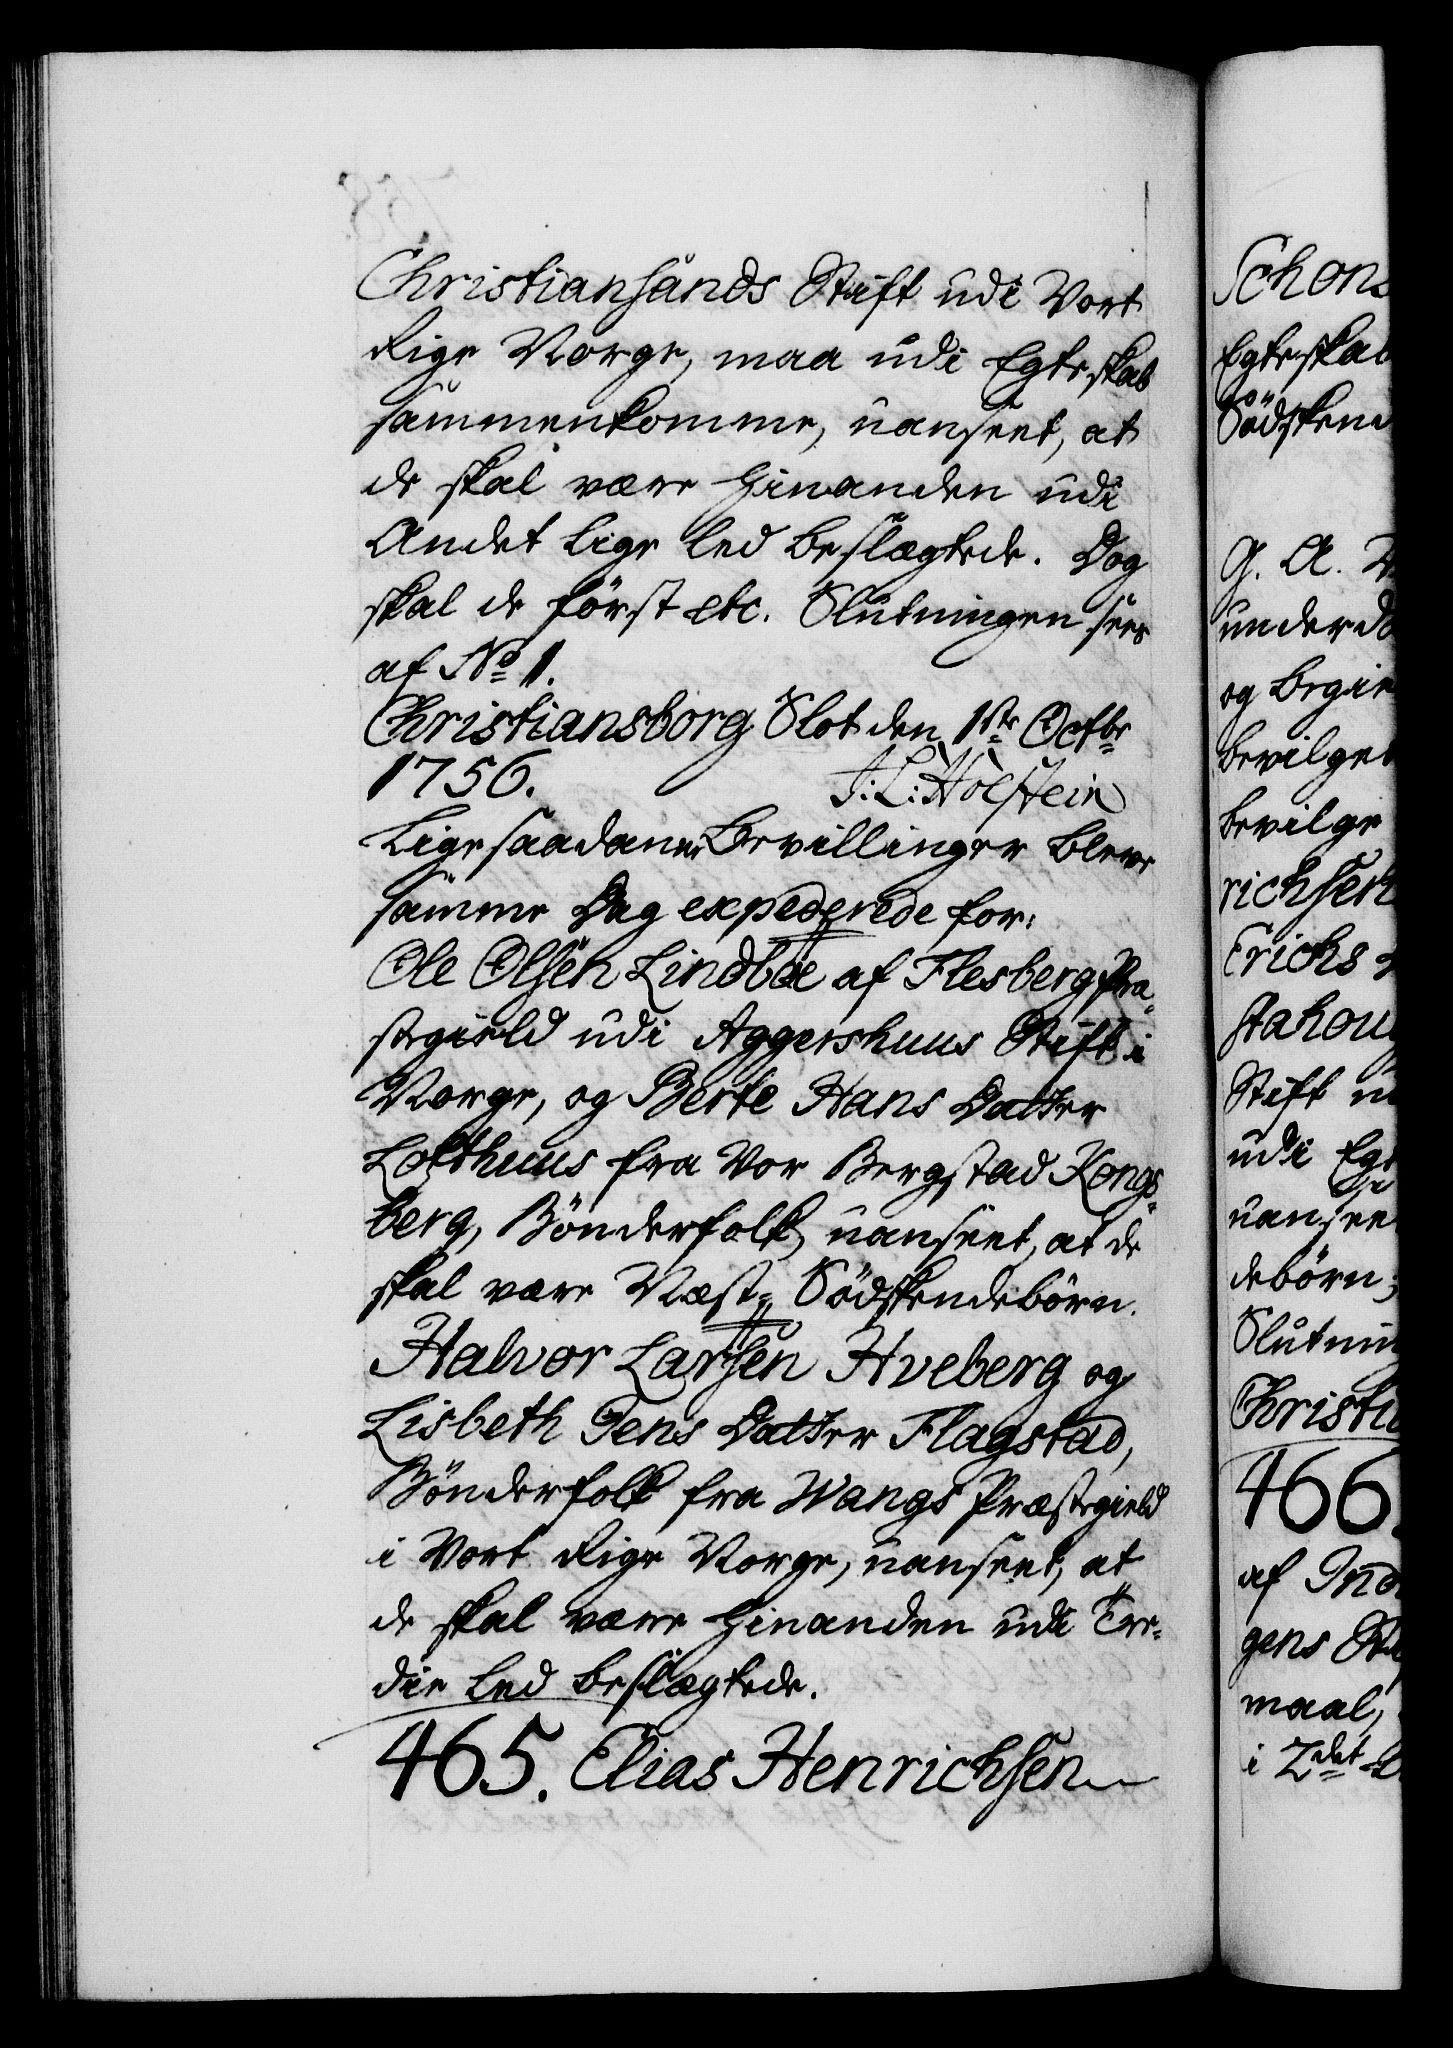 Christiansands Stift udi Vort
Rige Norge, maa udi Egteskab
sammenkomme, uanseet, at
de skal være hinanden udi
Andet lige led beslægtede. Dog
skal de först etc. Slutningen sees
af No 1.
Christiansborg Slot den 1ste Octbr
1756. J: L: Holstein
Ligesaadanne Bevillinger bleve
samme Dag expederede for:
Ole Olsen Lindboe af Flesberg Præ-
stegield udi Aggershuus Stift i
Norge, og Berte Hans Datter
Lofthuus fra Vor Bergstad Kongs-
berg, Bönderfolk, uanseet, at de
skal være Næst-Södskendebörn.
Halvor Larsen Hveberg og
Lisbeth Jens Datter Flagstad,
Bönderfolk fra Wangs Præstegield
i Vort Rige Norge, uanseet, at
de skal være hinanden udi Tre-
die Led beslægtede.
465. Elias Henrichsen
Schons
Egteskab
Södsken
G. A.
underd
og begie
bevilget
bevilge
richsen
Erichs
Stift u
udi Eg
uansee
debörn;
Slutnin
Christi
466.
af Ind
gens
maal,
i 2det